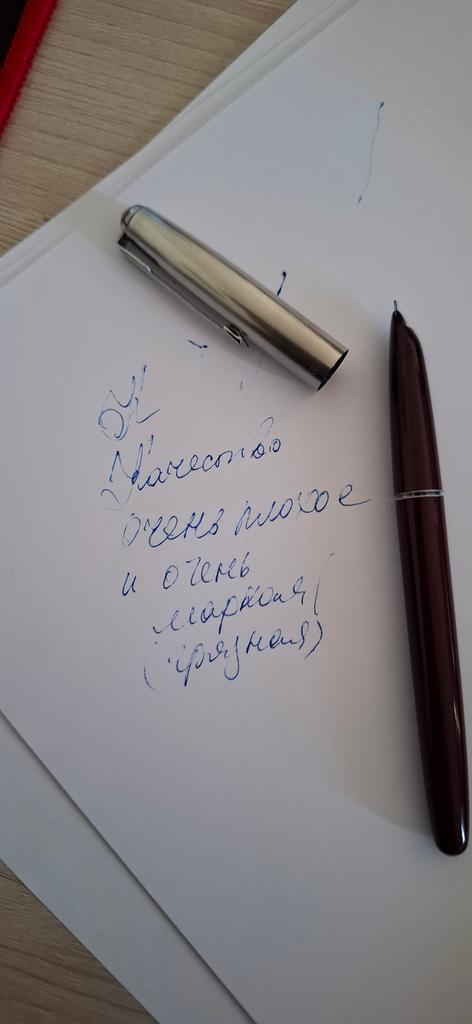 К
Качество
очень плохое
и очень
маркая (
(грязная)